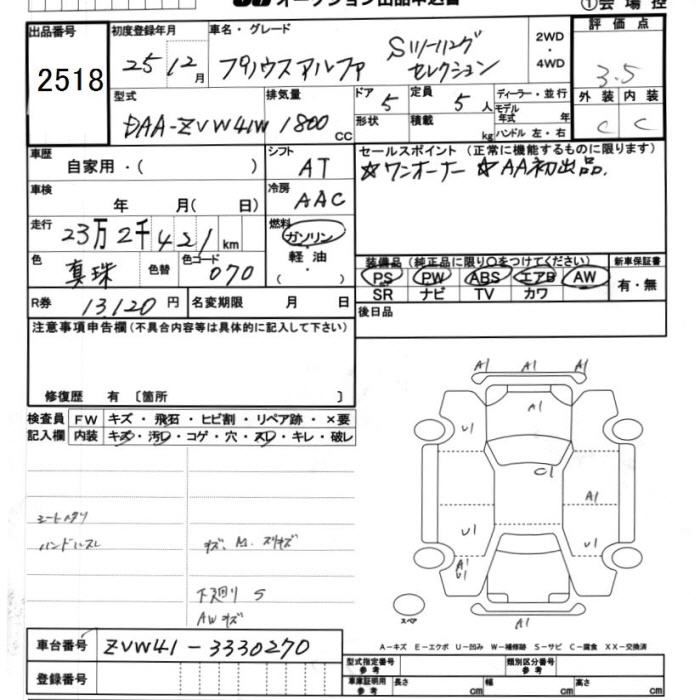 オークション出品申込書
①会場控
出品番号
2518
初度登録年月
25年12月
車名・グレード
プリウスアルファ
Sツーリング
セレクション
2WD
・
4WD
評価点
3.5
外装 内装
C C
型式
DAA-ZVW41W
排気量
1800cc
ドア 5
形状
定員 5人
積載 kg
ディーラー・並行
モデル年式 年
ハンドル 左・右
車歴
自家用・( )
シフト
AT
セールスポイント(正常に機能するものに限ります)
☆ワンオーナー ☆AA初出品.
車検
年 月( 日)
冷房
AAC
走行
23万2千421km
燃料
ガソリン
・
軽油
・
( )
色
真珠
色替
色コード
070
装備品(純正品に限り○をつけてください)
PS PW ABS エアB AW
SR ナビ TV カワ
新車保証書
有・無
R券 13,120円
名変期限 月 日
後日品
注意事項申告欄(不具合内容等は具体的に記入して下さい)
修復歴 有〔箇所 〕
検査員 FW キズ・飛石・ヒビ割・リペア跡・×要
記入欄 内装 キズ・汚レ・コゲ・穴・スレ・キレ・破レ
シートスレ
ハンドルスレ
キズ、M、スリキズ
下廻り S
AWキズ
A1 A1 A1
A1
U1
C1
A1
U1 U1
A1
U1
A1
スペア
A-キズ E-エクボ U-凹み W-補修跡 S-サビ C-腐食 XX-交換済
車台番号
ZVW41-3330270
登録番号
型式指定番号参考
類別区分番号参考
車庫証明用参考
長さ cm 幅 cm 高さ cm